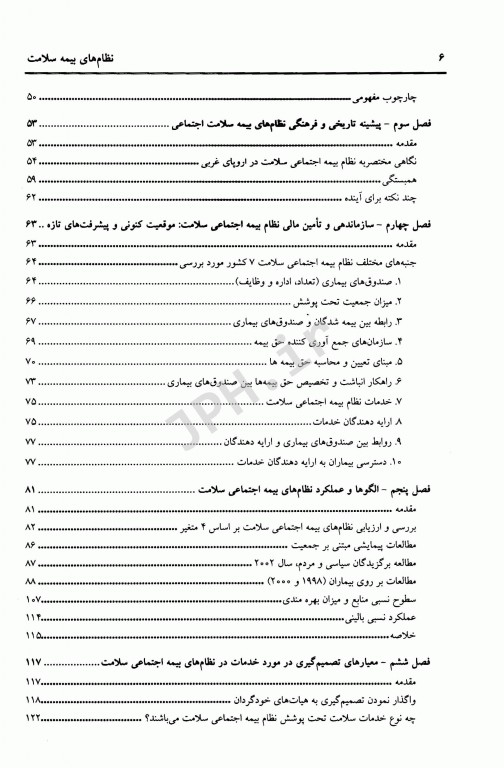 ۶ نظام‌های بیمه سلامت
چارچوب مفهومی ۵۰
فصل سوم – پیشینه تاریخی و فرهنگی نظام‌های بیمه سلامت اجتماعی ۵۳
مقدمه ۵۳
نگاهی مختصربه نظام بیمه اجتماعی سلامت در اروپای غربی ۵۴
همبستگی ۵۹
چند نکته برای آینده ۶۲
فصل چهارم – سازماندهی و تأمین مالی نظام بیمه اجتماعی سلامت: موقعیت کنونی و پیشرفت‌های تازه .. ۶۳
مقدمه ۶۳
جنبه‌های مختلف نظام بیمه اجتماعی سلامت ۷ کشور مورد بررسی ۶۴
۱. صندوق‌های بیماری (تعداد، اداره و وظایف) ۶۴
۲. میزان جمعیت تحت پوشش ۶۶
۳. رابطه بین بیمه شدگان و صندوق‌های بیماری ۶۷
۴. سازمان‌های جمع آوری کننده حق بیمه ۶۹
۵. مبنای تعیین و محاسبه حق بیمه ها ۷۰
۶. راهکار انباشت و تخصیص حق بیمه‌ها بین صندوق‌های بیماری ۷۳
۷. خدمات نظام بیمه اجتماعی سلامت ۷۵
۸. ارایه دهندگان خدمات ۷۵
۹. روابط بین صندوق‌های بیماری و ارایه دهندگان ۷۷
۱۰. دسترسی بیماران به ارایه دهندگان خدمات ۷۷
فصل پنجم – الگوها و عملکرد نظام‌های بیمه اجتماعی سلامت ۸۱
مقدمه ۸۱
بررسی و ارزیابی نظام‌های بیمه اجتماعی سلامت بر اساس ۴ متغیر ۸۲
مطالعات پیمایشی مبتنی بر جمعیت ۸۶
مطالعه برگزیدگان سیاسی و مردم، سال ۲۰۰۲ ۸۷
مطالعات بر روی بیماران (۱۹۹۸ و ۲۰۰۰) ۸۸
سطوح نسبی منابع و میزان بهره مندی ۱۰۷
عملکرد نسبی بالینی ۱۱۴
خلاصه ۱۱۵
فصل ششم – معیارهای تصمیم‌گیری در مورد خدمات در نظام‌های بیمه اجتماعی سلامت ۱۱۷
مقدمه ۱۱۷
واگذار نمودن تصمیم‌گیری به هیات‌های خودگردان ۱۱۸
چه نوع خدمات سلامت تحت پوشش نظام بیمه اجتماعی سلامت می‌باشند؟ ۱۲۲
JPH.ir